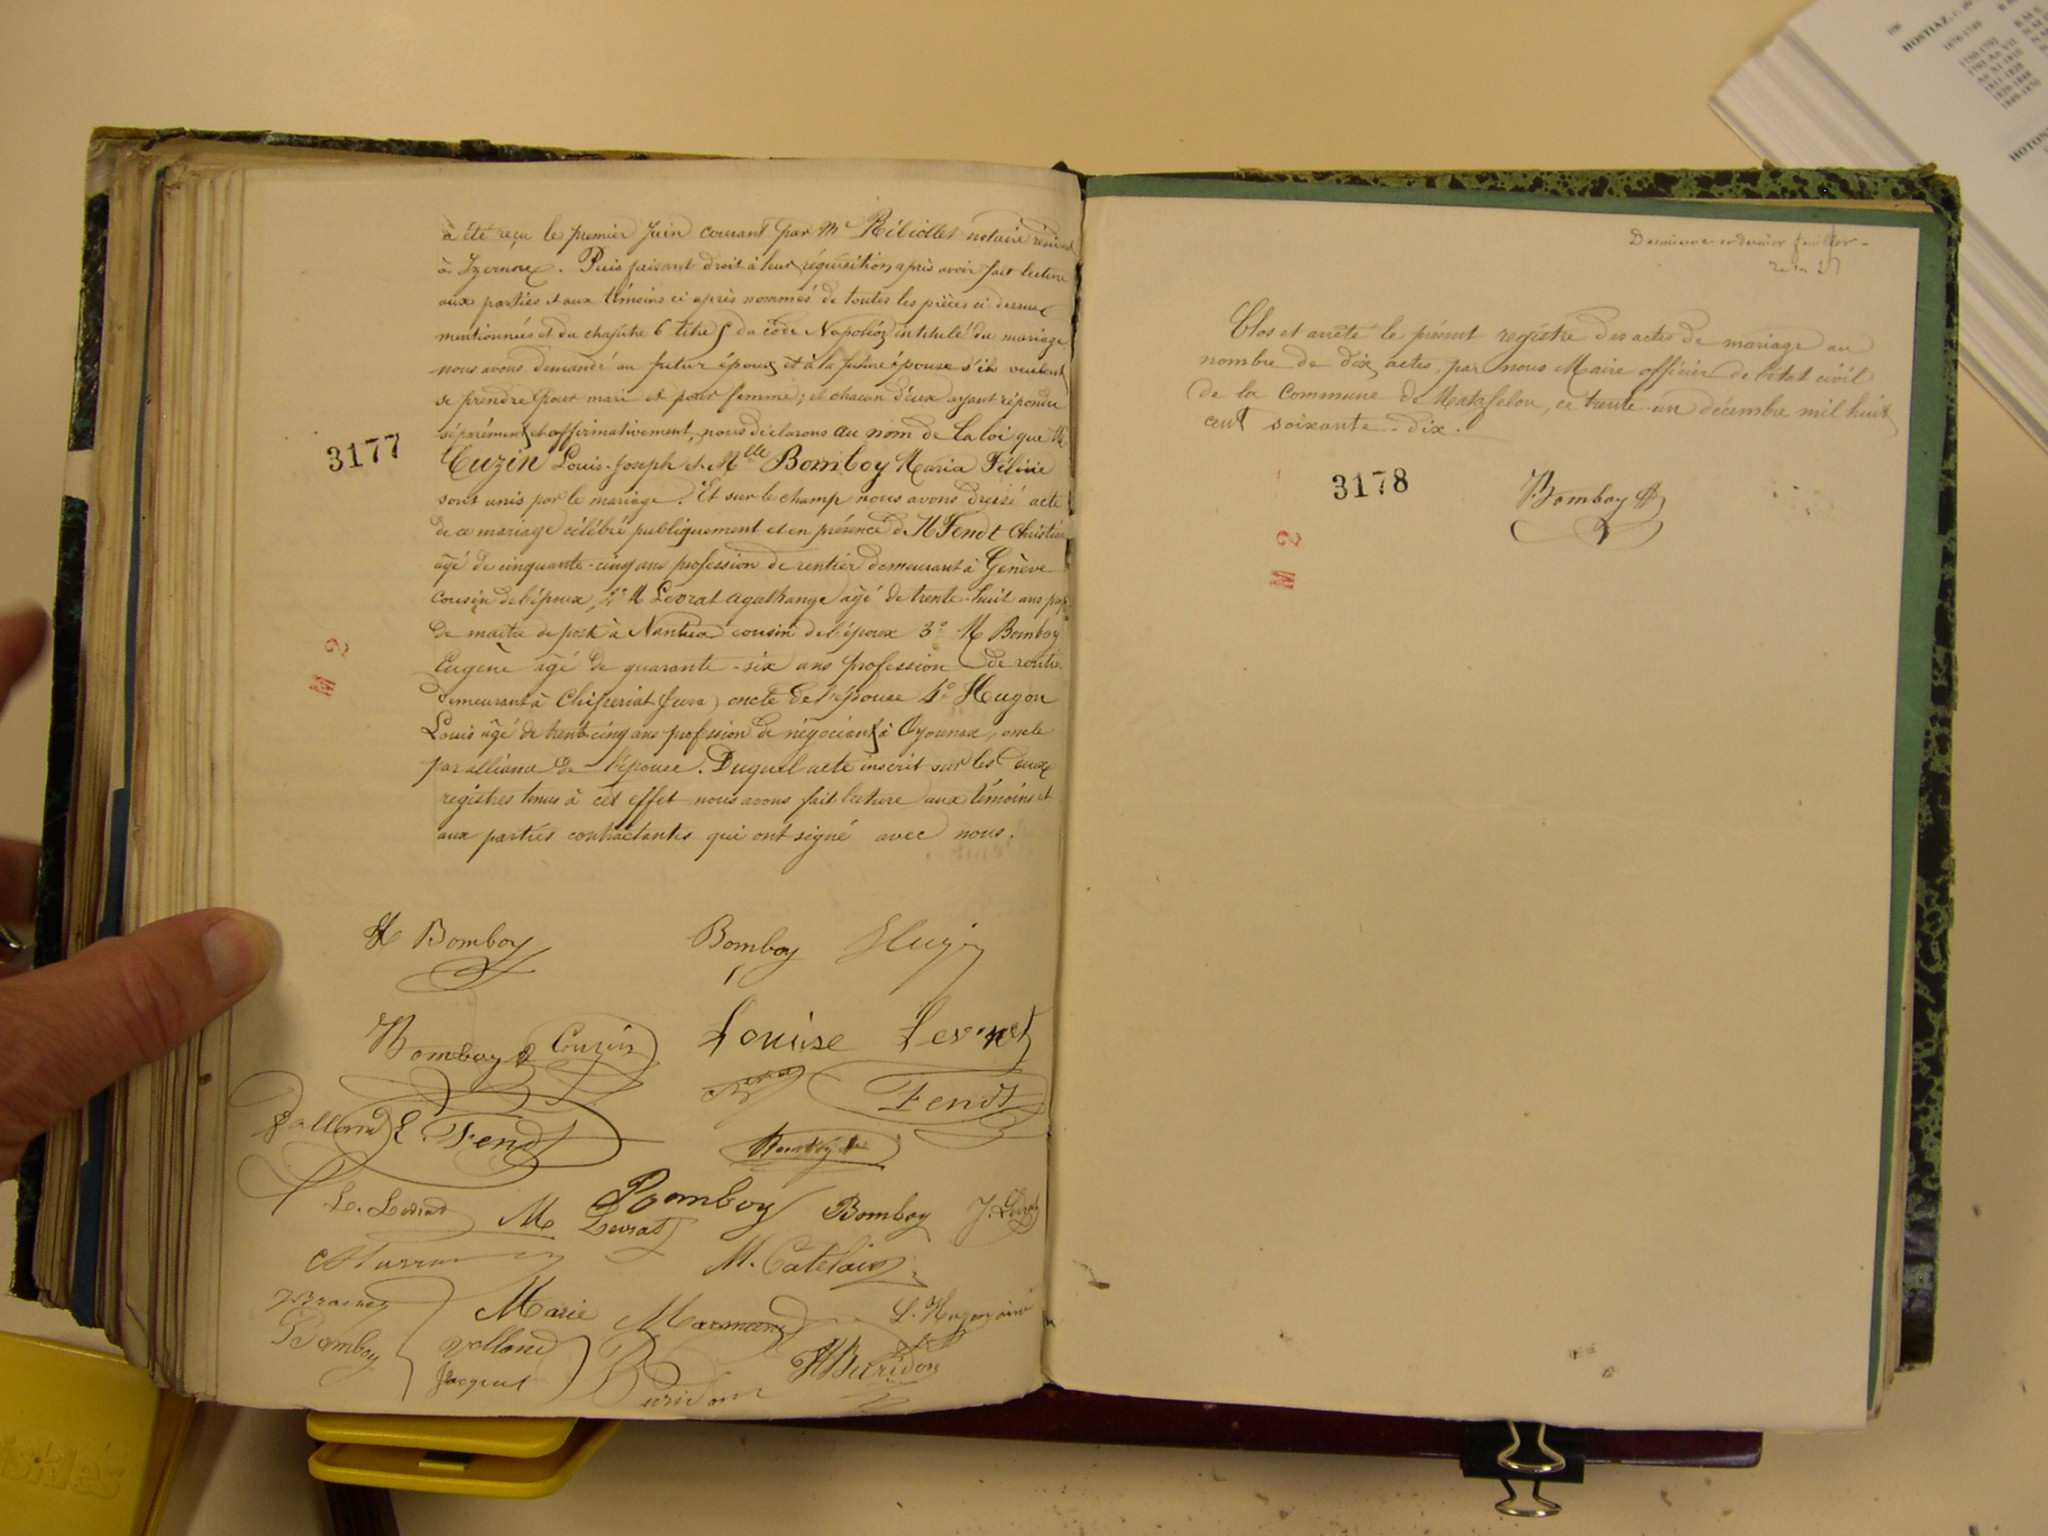 à été reçu le premier juin courant par Me Rébiollet notaire résidant
à Izernore. Puis faisant droit à leur réquisition après avoir fait lecture
aux parties et aux témoins ci après nommés de toutes les pièces ci dessus
mentionnées et du chapitre 6 titre 5 du code Napoléon intitulé du mariage
nous avons demandé au futur époux et à la future épouse s'ils veulent
se prendre pour mari et pour femme; et chacun d'eux ayant répondu
séparément et affirmativement, nous déclarons au nom de La loi que Mr
3177
Cuzin Louis-Joseph et Mlle Bomboy Maria Félicie
sont unis par le mariage. Et sur le champ nous avons dressé acte
de ce mariage célébré publiquement et en présence de M Fendt Christian
âgé de cinquante-cinq ans profession de rentier demeurant à Genève
cousin de l'époux, 2° M Levrat Agathange âgé de trente-huit ans prof
de maître de poste à Nantua cousin de l'époux 3° M Bomboy
Eugène âgé de quarante-six ans profession de rentier
demeurant à Chiseriat (Jura) oncle de l'épouse 4° Hugon
Louis âgé de trente cinq ans profession de négociant à Oyonnax, oncle
par alliance de l'épouse. Duquel acte inscrit sur les deux
registres tenus à cet effet nous avons fait lecture aux témoins et
aux parties contractantes qui ont signé avec nous.
M 2
Bomboy
Bomboy
Bomboy Cuzin
Louise Levrat
Fendt
Volland E. Fendt
L. Levrat
M Levrat
Bomboy
Bomboy
J. Levrat
M. Catelain
Bomboy
Marie
Volland
Jacquet
L. Hugon aîné
Buridon
Buridon
Clos et arrêté le présent registre des actes de mariage au
nombre de dix actes, par nous Maire officier de l'état civil
de la Commune de Matafelon, ce trente-un décembre mil huit
cent soixante-dix.
3178
Bomboy
M 2
HOSTIAZ,